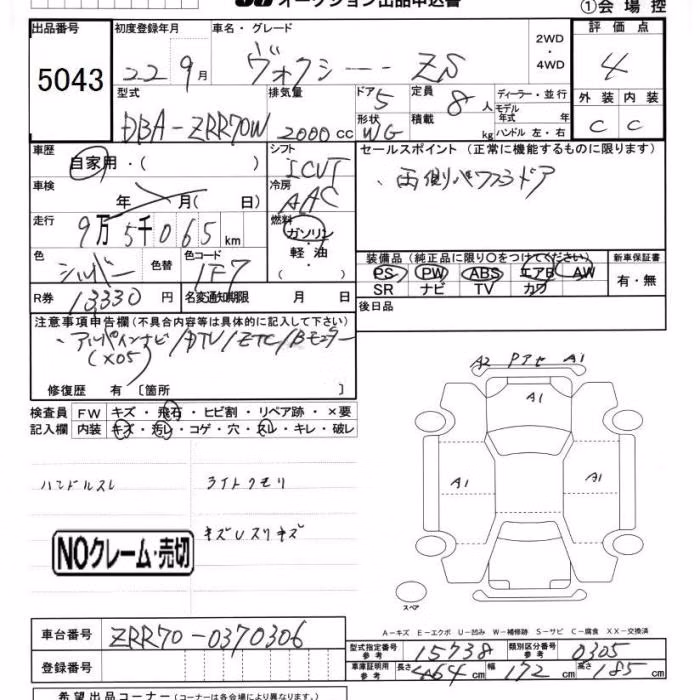 オークション出品申込書
①会場控
出品番号 初度登録年月 車名・グレード 評価点
5043 22 9月 ヴォクシー ZS 2WD・4WD 4
型式 排気量 ドア 定員 ディーラー・並行 外装 内装
DBA-ZRR70W 2000cc 5 8人 モデル年式 年 C C
形状 WG 積載 kg ハンドル 左・右
車歴 シフト セールスポイント (正常に機能するものに限ります)
自家用・( ) ICVT 、両側パワスラドア
車検 冷房
年 月( 日) AAC
走行 燃料
9万5千065km ガソリン・軽油・( )
色 色替 色コード 装備品 (純正品に限り○をつけてください) 新車保証書
シルバー 1F7 PS PW ABS エアB AW 有・無
SR ナビ TV カワ
R券 13330円 名変通知期限 月 日 後日品
注意事項申告欄 (不具合内容等は具体的に記入して下さい)
、アルパインナビ/DTV/ETC/Bモニター
(X05)
修復歴 有 〔箇所 〕
検査員記入欄 FW キズ・飛石・ヒビ割・リペア跡・×要
内装 キズ・汚レ・コゲ・穴・スレ・キレ・破レ
A2 Pアセ A1
A1
A1 A1
ハンドルスレ ライトクモリ
キズUスリキズ
NOクレーム・売切
スペア
A-キズ E-エクボ U-凹み W-補修跡 S-サビ C-腐食 XX-交換済
車台番号 ZRR70-0370306
型式指定番号 参考 15738 類別区分番号 参考 0305
登録番号
車庫証明用 参考 長さ 464cm 幅 172cm 高さ 185cm
希望出品コーナー (コーナーは各会場により異なります。)